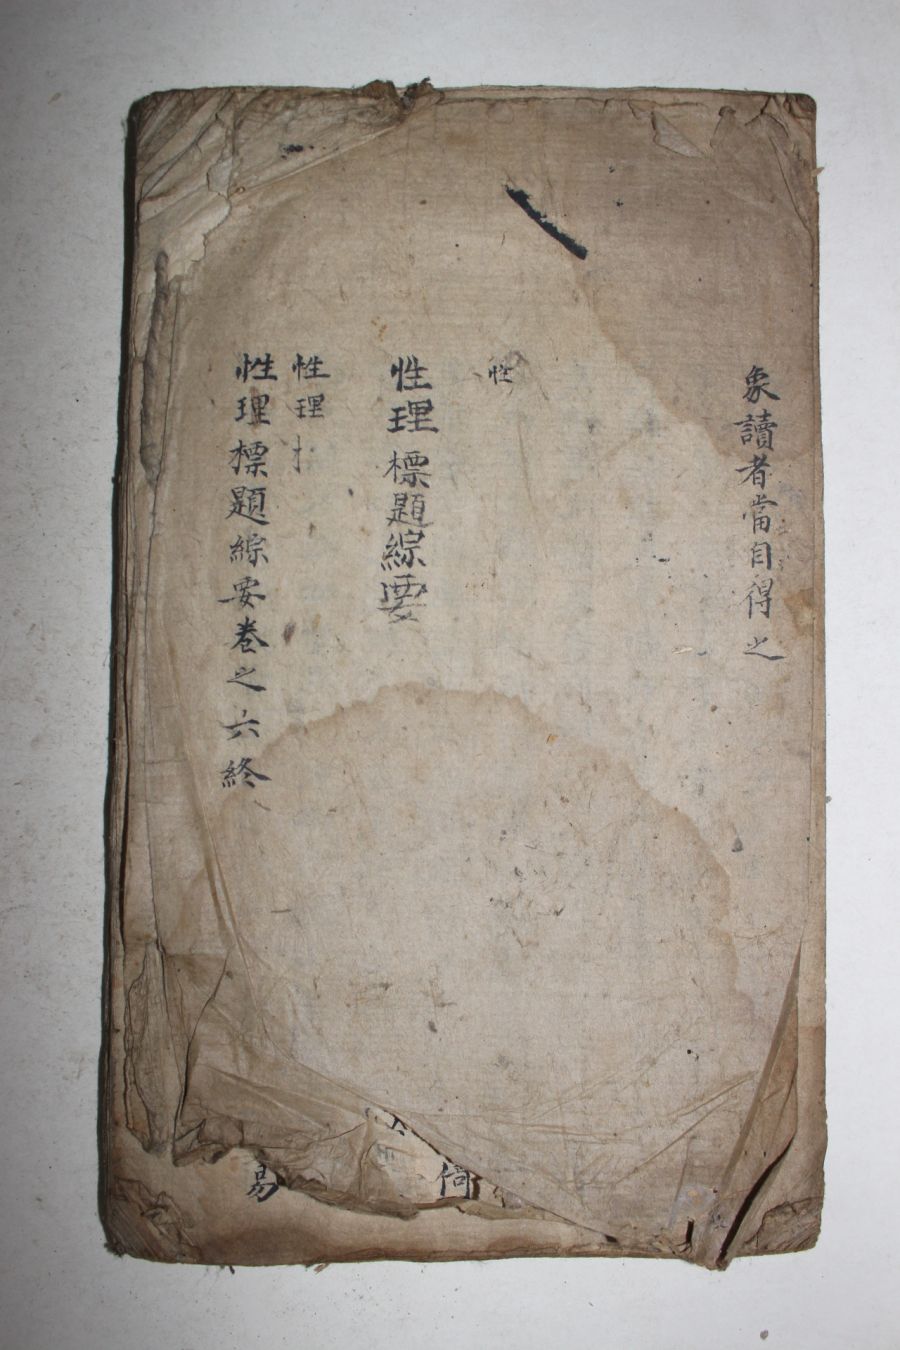 象讀者當目得之
性
性理標題綜要
性理
性理標題綜要卷之六終
倚
易